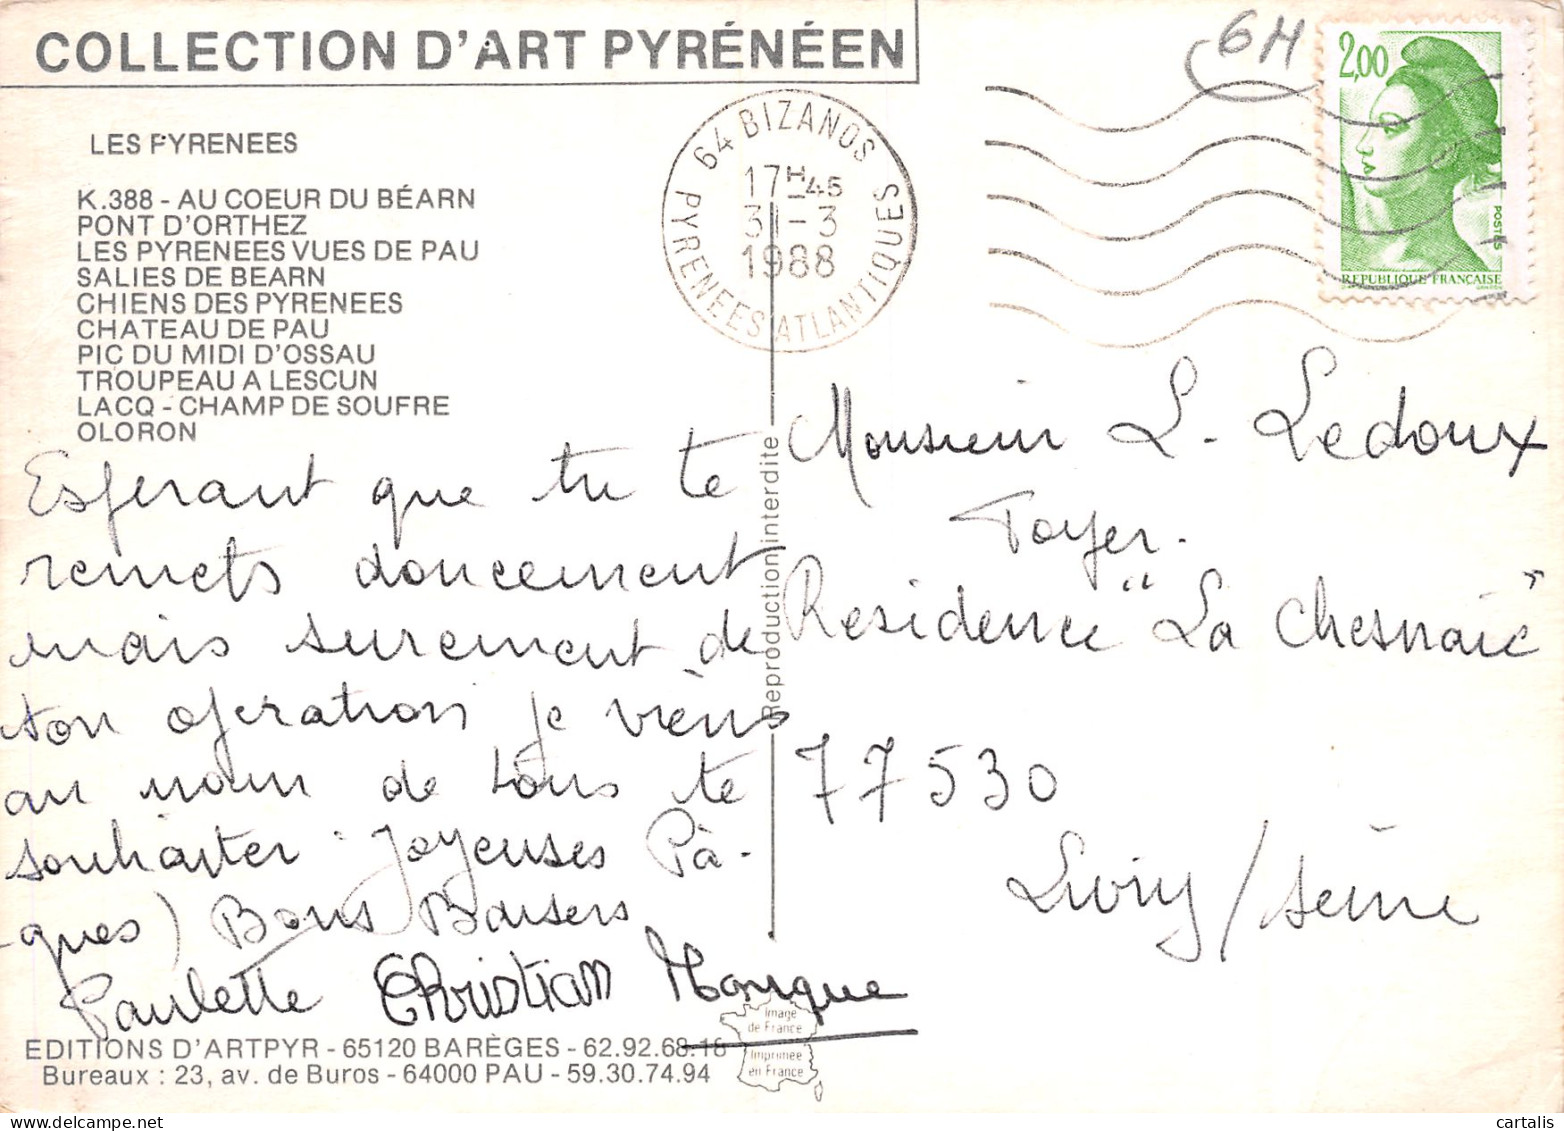 COLLECTION D'ART PYRÉNÉEN
6H
2,00
POSTES
REPUBLIQUE FRANÇAISE
64 BIZANOS
17H45
31-3
1988
PYRENEES ATLANTIQUES
LES PYRENEES
K.388 - AU COEUR DU BÉARN
PONT D'ORTHEZ
LES PYRENEES VUES DE PAU
SALIES DE BEARN
CHIENS DES PYRENEES
CHATEAU DE PAU
PIC DU MIDI D'OSSAU
TROUPEAU A LESCUN
LACQ - CHAMP DE SOUFRE
OLORON
Esperant que tu te
remets doucement
mais surement de
ton operation je viens
au nom de tous te
souhaiter Joyeuses Pâ-
-ques) Bons Baisers
Paulette Christian Monique
Reproduction interdite
Monsieur L. Ledoux
Foyer.
Residence "La Chesnaie"
77530
Livry/seine
EDITIONS D'ARTPYR - 65120 BARÈGES - 62.92.68.18
Bureaux : 23, av. de Buros - 64000 PAU - 59.30.74.94
Image
de France
Imprimée
en France
cartalis